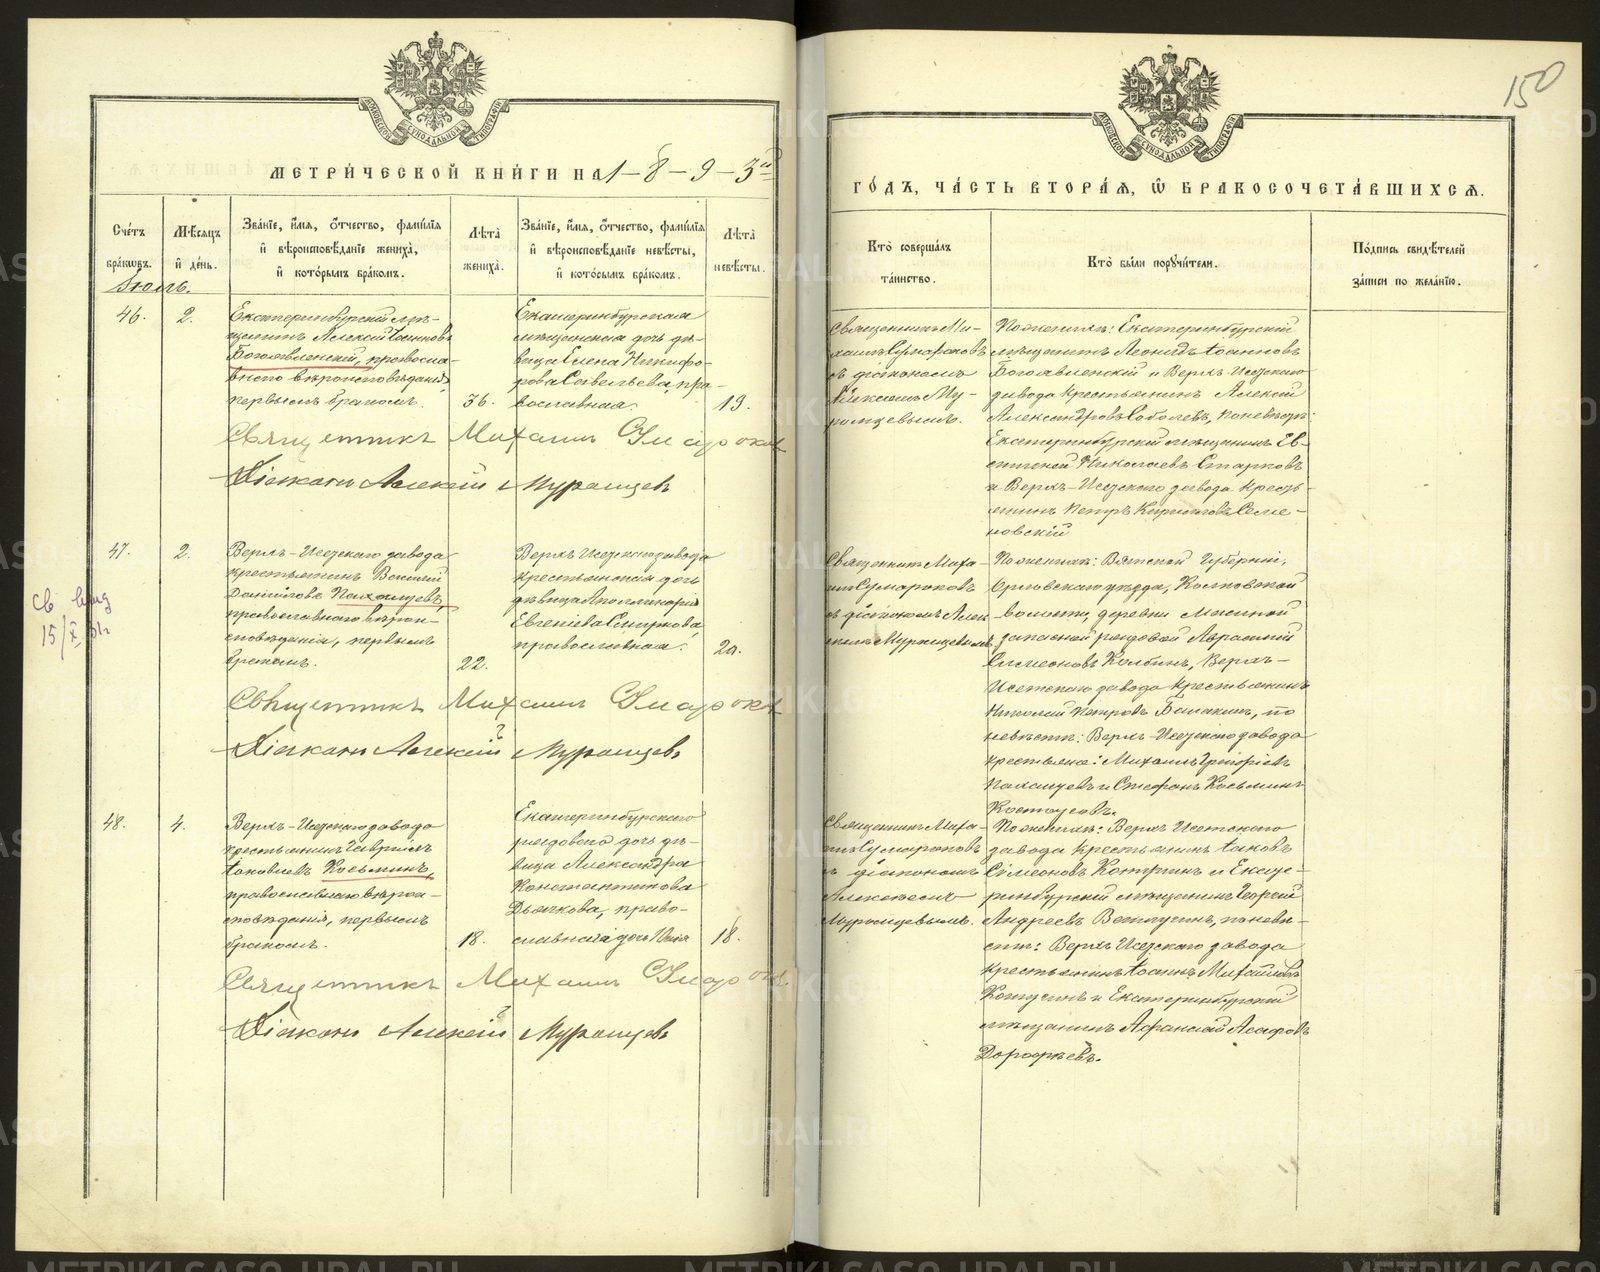 150
МЕТРИ́ЧЕСКОЙ КНИ́ГИ НА 1-8-9-3й
ГО́ДЪ, ЧА́СТЬ ВТОРА́Я, Ѽ БРАКОСОЧЕТА́ВШИХСЯ.
Сче́тъ бра́ковъ.
Мѣ́сяцъ и҆ де́нь.
Зва́нїе, и҆́мя, ѻ҆́тчество, фами́лїя
и҆ вѣроисповѣ́данїе жениха̀,
и҆ кото́рымъ бра́комъ.
Лѣ́та жениха̀.
Зва́нїе, и҆́мя, ѻ҆́тчество, фами́лїя
и҆ вѣроисповѣ́данїе невѣ́сты,
и҆ кото́рымъ бра́комъ.
Лѣ́та невѣ́сты.
Кто̀ соверша́лъ
та́инство.
Кто̀ бы́ли порꙋчи́тели.
По́дпись свидѣ́телей
за́писи по жела́нїю.
Іюль.
46.
2.
Екатеринбургскій мѣ-
щанинъ Алексій Іоанновъ
Богоявленскій, правосла-
внаго вѣроисповѣданія
первымъ бракомъ.
36.
Екатеринбургская
мѣщанская дочь дѣ-
вица Елена Никифо-
рова Савельева, пра-
вославная.
19.
Священникъ Ми-
хаилъ Сумароковъ
съ діакономъ
Алексіемъ Му-
ромцевымъ.
По женихѣ: Екатеринбургскій
мѣщанинъ Леонидъ Іоанновъ
Богоявленскій и Верхъ-Исетскаго
завода крестьянинъ Алексій
Александровъ Соболевъ, по невѣстѣ:
Екатеринбургскій мѣщанинъ Ев-
гений Николаевъ Старковъ
и Верхъ-Исетскаго завода кресть-
янинъ Петръ Кириловъ Семе-
новскій
Священникъ Михаилъ Сумароковъ
Діаконъ Алексій Муромцевъ
47.
2.
Верхъ-Исетскаго завода
крестьянинъ Василій
Даниловъ Пахалуевъ,
православнаго вѣрои-
сповѣданія, первымъ
бракомъ.
22.
Верхъ Исетскаго завода
крестьянская дочь
дѣвица Апполинарія
Евгеніева Смиркова
православная.
20.
15/X
Священникъ Миха-
илъ Сумароковъ
съ діакономъ Алек
сіемъ Муромцевымъ
По женихѣ: Вятской Губерніи,
Орловскаго уѣзда,
волости, деревни
запасной рядовой
Симеоновъ Колбинъ, Верхъ-
Исетскаго завода крестьянинъ
Николай Петровъ Балакинъ, по
невѣстѣ: Верхъ-Исетскаго завода
крестьяне: Михаилъ Григорьевъ
Пахалуевъ и Стефанъ Косьминъ
Костоусовъ.
Священникъ Михаилъ Сумароковъ
Діаконъ Алексій Муромцевъ
48.
4.
Верхъ-Исетскаго завода
крестьянинъ Гавріилъ
Іаковлевъ Косьминъ,
православнаго вѣрои-
сповѣданія, первымъ
бракомъ.
18.
Екатеринбургскаго
рядоваго дочь дѣ-
вица Александра
Константинова
Дьячкова, право-
славная
18.
Священникъ Миха-
илъ Сумароковъ
съ діакономъ
Алексіемъ
Муромцевымъ.
По женихѣ: Верхъ Исетскаго
завода крестьянинъ Іаковъ
Симеоновъ Контринъ и Екате-
ринбургскій мѣщанинъ Георгій
Андреевъ Ветлугинъ, по невѣ-
стѣ: Верхъ Исетскаго завода
крестьянинъ Іоаннъ Михайловъ
Котугинъ и Екатеринбургскій
мѣщанинъ Афанасій Асафовъ
Дорофѣевъ.
Священникъ Михаилъ Сумароковъ
Діаконъ Алексій Муромцевъ